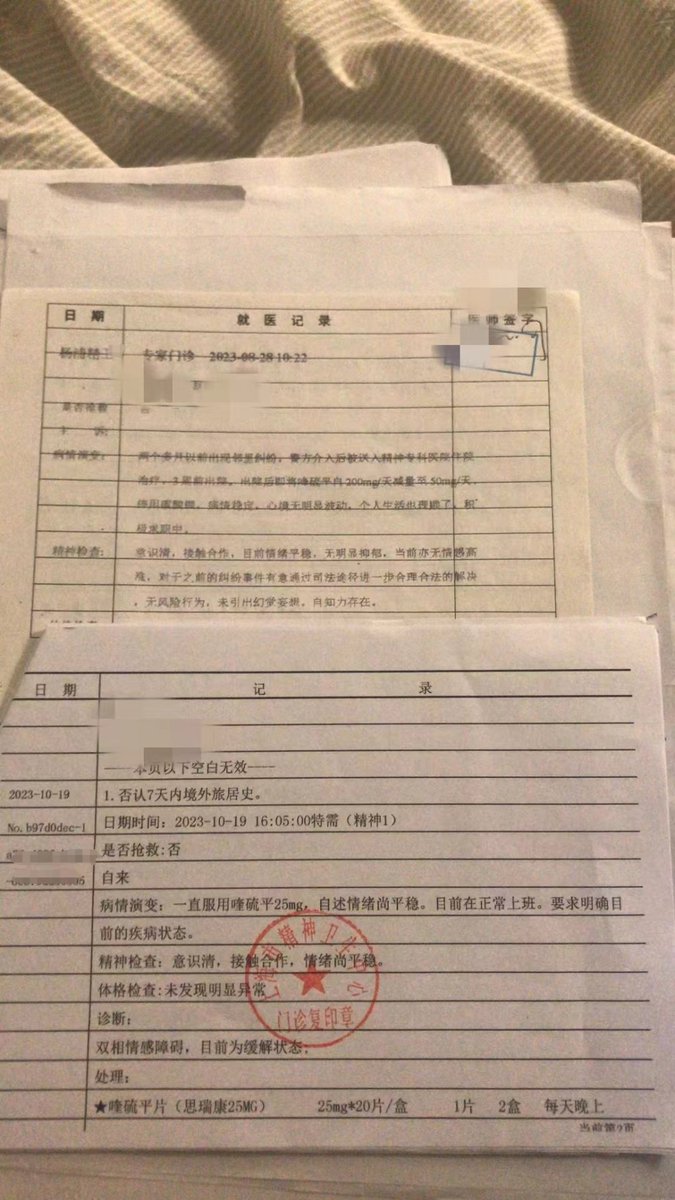 日 期 就 医 记 录 医 师 签 字
专家门诊 2023-08-28 10:22
是否抢救 否
诉:
病情演变: 两个多月以前出现邻里纠纷,警方介入后被送入精神专科医院住院
治疗,3周前出院。出院后即将喹硫平自200mg/天减量至50mg/天,
停用碳酸锂,病情稳定,心境无明显波动,个人生活也理顺了,积
极求职中。
精神检查: 意识清,接触合作,目前情绪平稳,无明显抑郁,当前亦无情感高
涨,对于之前的纠纷事件有意通过司法途径进一步合理合法的解决
,无风险行为,未引出幻觉妄想。自知力存在。
日 期 记 录
——本页以下空白无效----
2023-10-19 1.否认7天内境外旅居史。
No.b97d0dec-1 日期时间:2023-10-19 16:05:00特需(精神1)
是否抢救:否
自来
病情演变:一直服用喹硫平25mg,自述情绪尚平稳。目前在正常上班。要求明确目
前的疾病状态。
精神检查:意识清,接触合作,情绪尚平稳。
体格检查:未发现明显异常
诊断:
双相情感障碍,目前为缓解状态;
处理:
★喹硫平片(思瑞康25MG) 25mg*20片/盒 1片 2盒 每天晚上
当前第2页
上海市精神卫生中心
门诊复印章